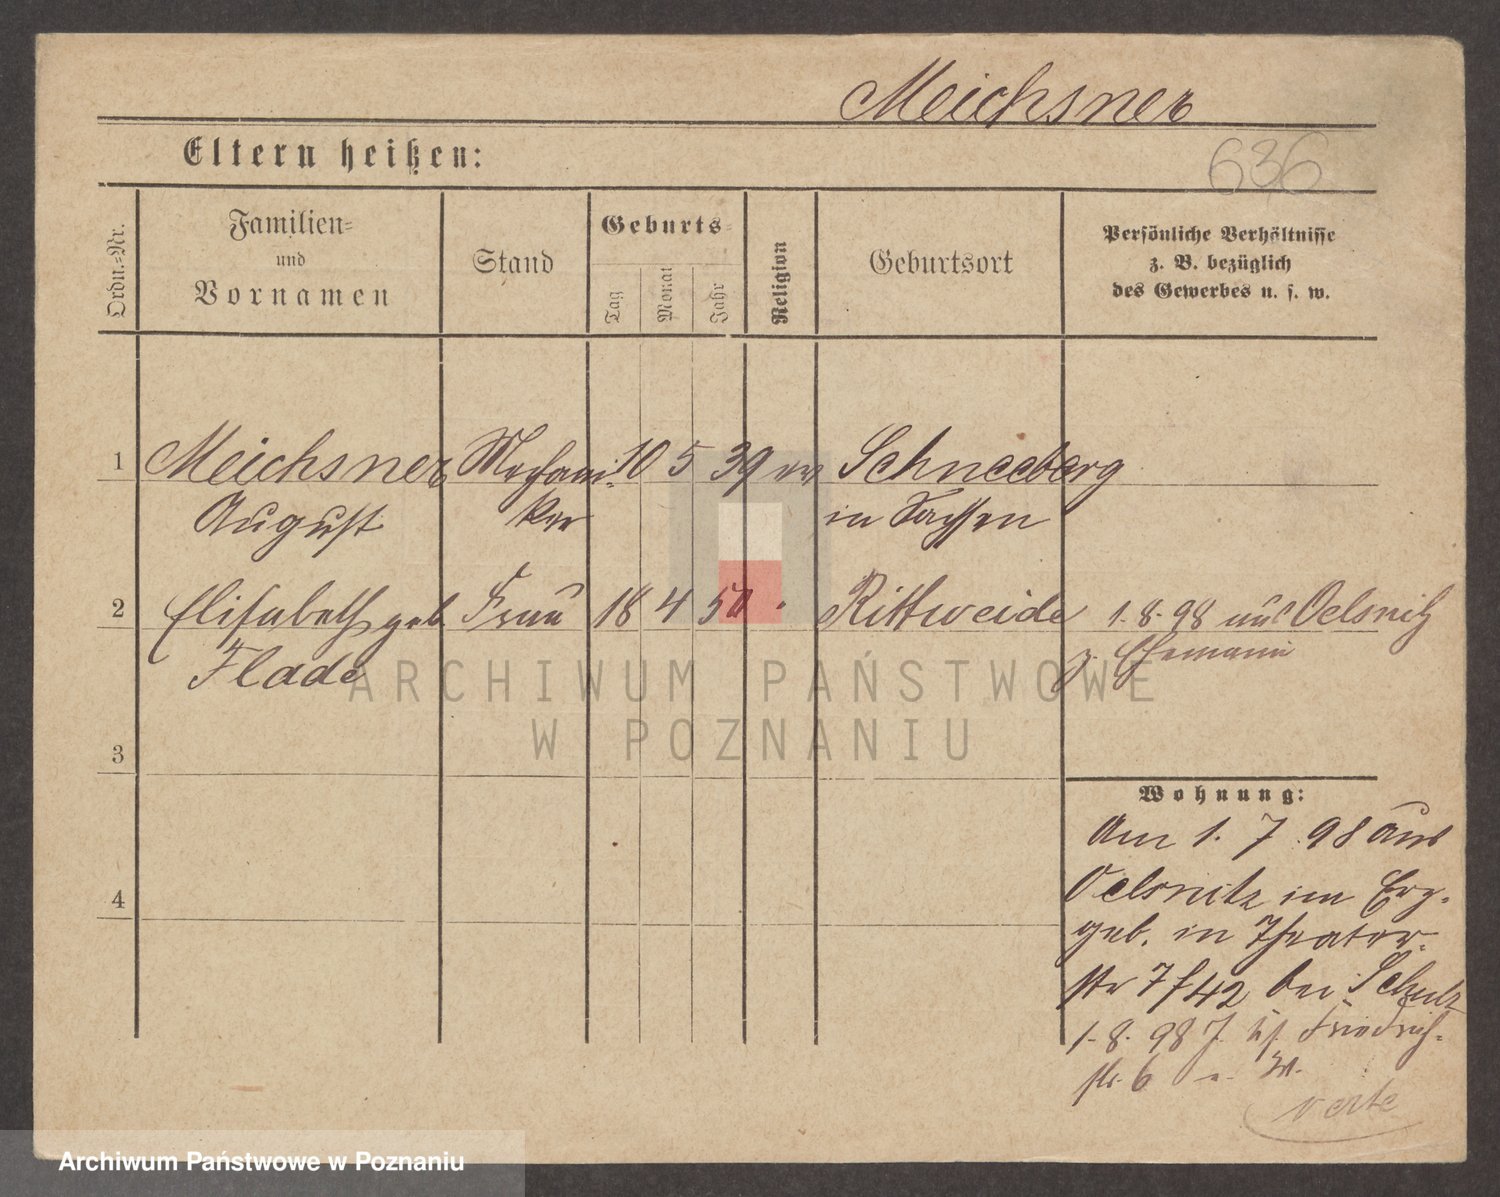 Meichsner
636
Eltern heißen:
Ordn.-Nr.
Familien-
und
Vornamen
Stand
Geburts-
Tag
Monat
Jahr
Religion
Geburtsort
Persönliche Verhältnisse
z. B. bezüglich
des Gewerbes u. s. w.
1 Meichsner Mechani- 10 5 39 ev Schneeberg
August ker in Sachsen
2 Elisabeth geb Frau 18 4 50 " Rittweida 1.8.98 aus Oelsnitz
Flade z. Ehemann
3
Wohnung:
Am 1. 7. 98 aus
4
Oelsnitz im Erz-
geb. in Theater-
str 7 f 42 bei Schulz
1.8.98 J. Friedrich-
str. 6 W.
verte
ARCHIWUM PAŃSTWOWE
W POZNANIU
Archiwum Państwowe w Poznaniu